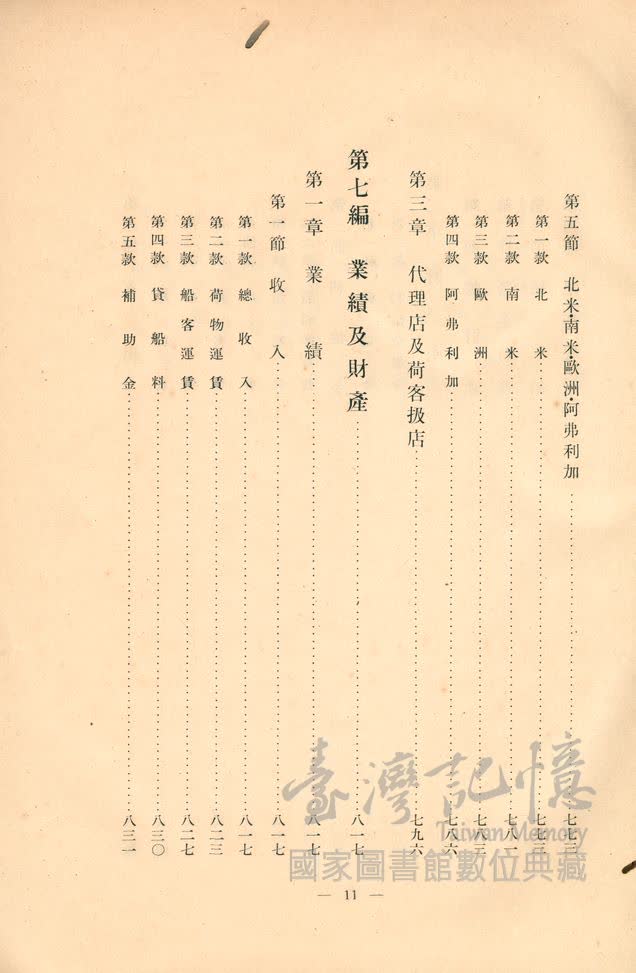 第五節 北米・南米・歐洲・阿弗利加……七七三
第一款 北米……七七三
第二款 南米……七八一
第三款 歐洲……七八三
第四款 阿弗利加……七八六
第三章 代理店及荷客扱店……七九六
第七編 業績及財產……八一七
第一章 業績……八一七
第一節 收入……八一七
第一款 總收入……八一七
第二款 荷物運賃……八二三
第三款 船客運賃……八二七
第四款 貸船料……八三〇
第五款 補助金……八三一
臺灣記憶
Taiwan Memory
國家圖書館數位典藏
— 11 —